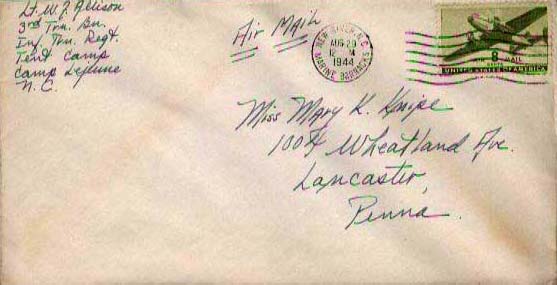 Lt. W. J. Allison
3rd Trn. Bn.
Inf. Trn. Regt.
Tent Camp
Camp Lejeune
N.C.
Air Mail
NEW RIVER, N.C.
AUG 29
12 M
1944
MARINE BARRACKS
8
MAIL
UNITED STATES OF AMERICA
Miss Mary K. Knipe
1004 Wheatland Ave.
Lancaster,
Penna.